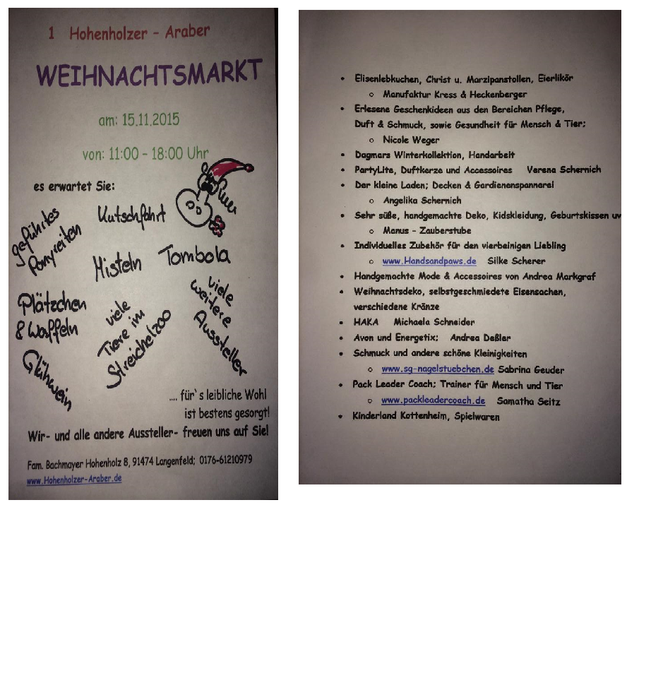 1 Hohenholzer - Araber
WEIHNACHTSMARKT
am: 15.11.2015
von: 11:00 - 18:00 Uhr
es erwartet Sie:
geführtes
Ponyreiten
Kutschfahrt
Misteln
Tombola
Plätzchen
& Waffeln
viele
Tiere im
Streichelzoo
viele
weitere
Aussteller
Glühwein
.... für`s leibliche Wohl
ist bestens gesorgt!
Wir- und alle andere Aussteller- freuen uns auf Sie!
Fam. Bachmayer Hohenholz 8, 91474 Langenfeld; 0176-61210979
www.Hohenholzer-Araber.de
• Elisenlebkuchen, Christ u. Marzipanstollen, Eierlikör
o Manufaktur Kress & Heckenberger
• Erlesene Geschenkideen aus den Bereichen Pflege,
Duft & Schmuck, sowie Gesundheit für Mensch & Tier;
o Nicole Weger
• Dagmars Winterkollektion, Handarbeit
• PartyLite, Duftkerze und Accessoires Verena Schernich
• Der kleine Laden; Decken & Gardienenspannerei
o Angelika Schernich
• Sehr süße, handgemachte Deko, Kidskleidung, Geburtskissen uv
o Manus - Zauberstube
• Individuelles Zubehör für den vierbeinigen Liebling
o www.Handsandpaws.de Silke Scherer
• Handgemachte Mode & Accessoires von Andrea Markgraf
• Weihnachtsdeko, selbstgeschmiedete Eisensachen,
verschiedene Kränze
• HAKA Michaela Schneider
• Avon und Energetix; Andrea Deßler
• Schmuck und andere schöne Kleinigkeiten
o www.sg-nagelstuebchen.de Sabrina Geuder
• Pack Leader Coach; Trainer für Mensch und Tier
o www.packleadercoach.de Samatha Seitz
• Kinderland Kottenheim, Spielwaren